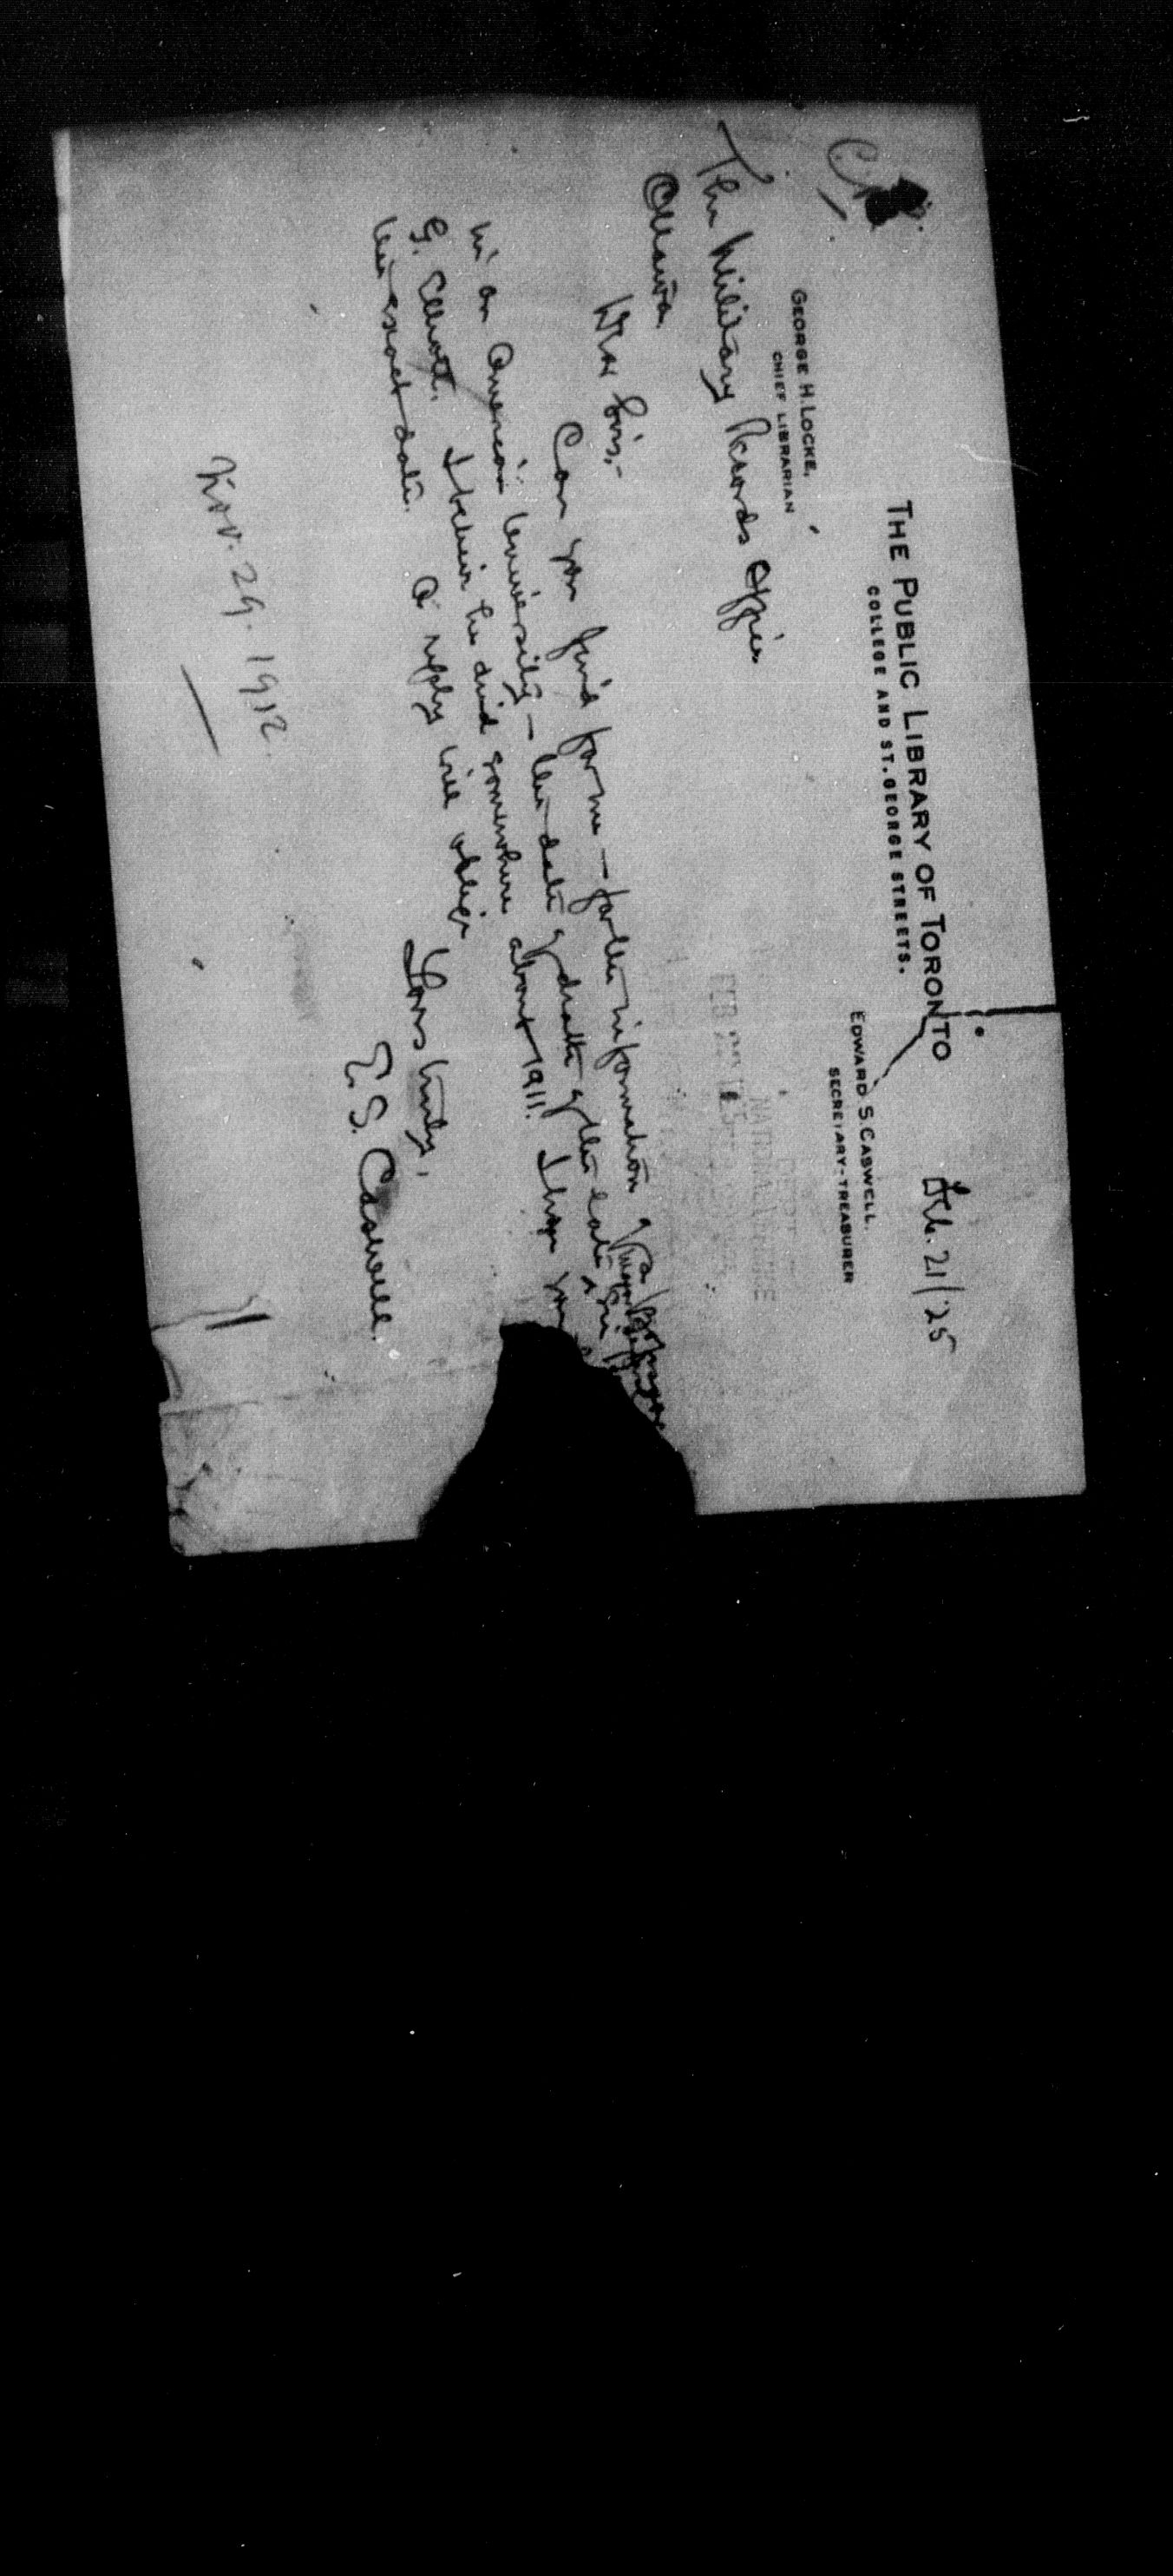 THE PUBLIC LIBRARY OF TORONTO
COLLEGE AND ST. GEORGE STREETS.
Feb. 21/25
GEORGE H. LOCKE,
CHIEF LIBRARIAN
EDWARD S. CASWELL,
SECRETARY-TREASURER
The Military Records Office
Ottawa
FEB
NATIONAL DEFENCE
Dear Sirs,-
Can you find for me – for the information of a
in an American University – the date of death of the late
G. Elliott. I believe he died somewhere about 1911. I hope you
the exact date. A reply will oblige
Yours truly,
E. S. Caswell.
Nov. 29. 1912.